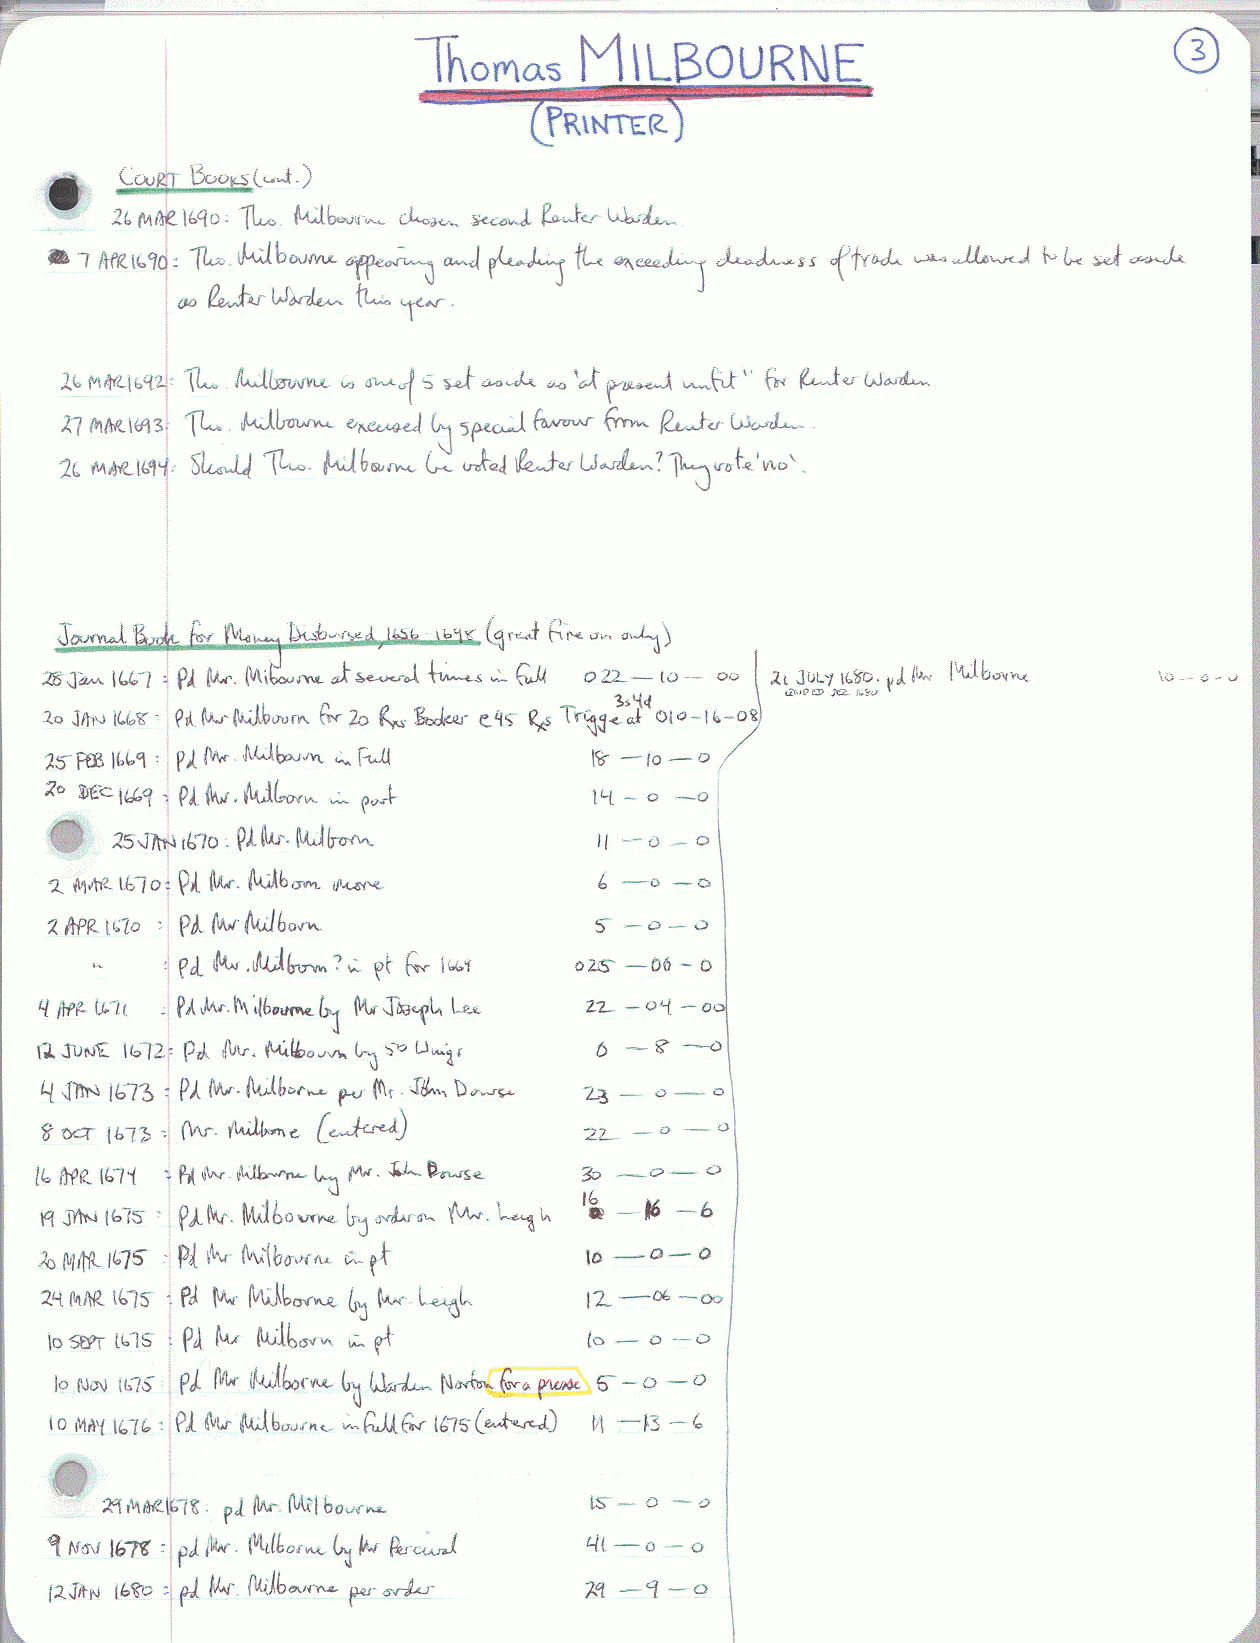 Thomas MILBOURNE
(PRINTER)
3
COURT BOOKS (cont.)
26 MAR 1690: Tho. Milbourne chosen second Renter Warden.
7 APR 1690: Tho. Milbourne appearing and pleading the exceeding deadness of trade was allowed to be set aside
as Renter Warden this year.
26 MAR 1692: Tho. Milbourne is one of 5 set aside as 'at present unfit" for Renter Warden
27 MAR 1693: Tho. Milbourne excused by special favour from Renter Warden.
26 MAR 1694: Should Tho. Milbourne be voted Renter Warden? They vote 'no'.
Journal Book for Money Disbursed, 1656-1698 (great fire on only)
28 Jan 1667: Pd Mr. Milbourne at several times in full 022 — 10 — 00
20 JAN 1668: Pd Mr Milbourn for 20 Rxs Booker & 45 Rxs Trigge at 3s4d 010-16-08
25 FEB 1669: Pd Mr. Milbourn in Full 18 — 10 — 0
20 DEC 1669: Pd Mr. Milborn in part 14 — 0 — 0
25 JAN 1670: Pd Mr. Milborn 11 — 0 — 0
2 MAR 1670: Pd Mr. Milborn more 6 — 0 — 0
2 APR 1670: Pd Mr Milborn 5 — 0 — 0
" : Pd Mr. Milborn? in pt for 1669 025 — 06 — 0
4 APR 1671: Pd Mr. Milbourne by Mr Joseph Lee 22 — 04 — 00
12 JUNE 1672: Pd Mr. Milbourn by 50 Wings 0 — 8 — 0
4 JAN 1673: Pd Mr. Milborne per Mr. John Dowse 23 — 0 — 0
8 OCT 1673: Mr. Milborne (entered) 22 — 0 — 0
16 APR 1674: Pd Mr. Milbourne by Mr. John Dowse 30 — 0 — 0
19 JAN 1675: Pd Mr. Milbourne by order on Mr. Leigh 16 — 16 — 6
20 MAR 1675: Pd Mr Milbourne in pt 10 — 0 — 0
24 MAR 1675: Pd Mr Milbourne by Mr. Leigh 12 — 06 — 00
10 SEPT 1675: Pd Mr Milborn in pt 10 — 0 — 0
10 NOV 1675: Pd Mr Milborne by Warden Norton for a presse 5 — 0 — 0
10 MAY 1676: Pd Mr Milbourne in full for 1675 (entered) 11 — 13 — 6
29 MAR 1678: pd Mr. Milbourne 15 — 0 — 0
9 NOV 1678: pd Mr. Milborne by Mr Percival 41 — 0 — 0
12 JAN 1680: pd Mr. Milbourne per order 29 — 9 — 0
21 JULY 1680: pd Mr Milborne 10 — 0 — 0